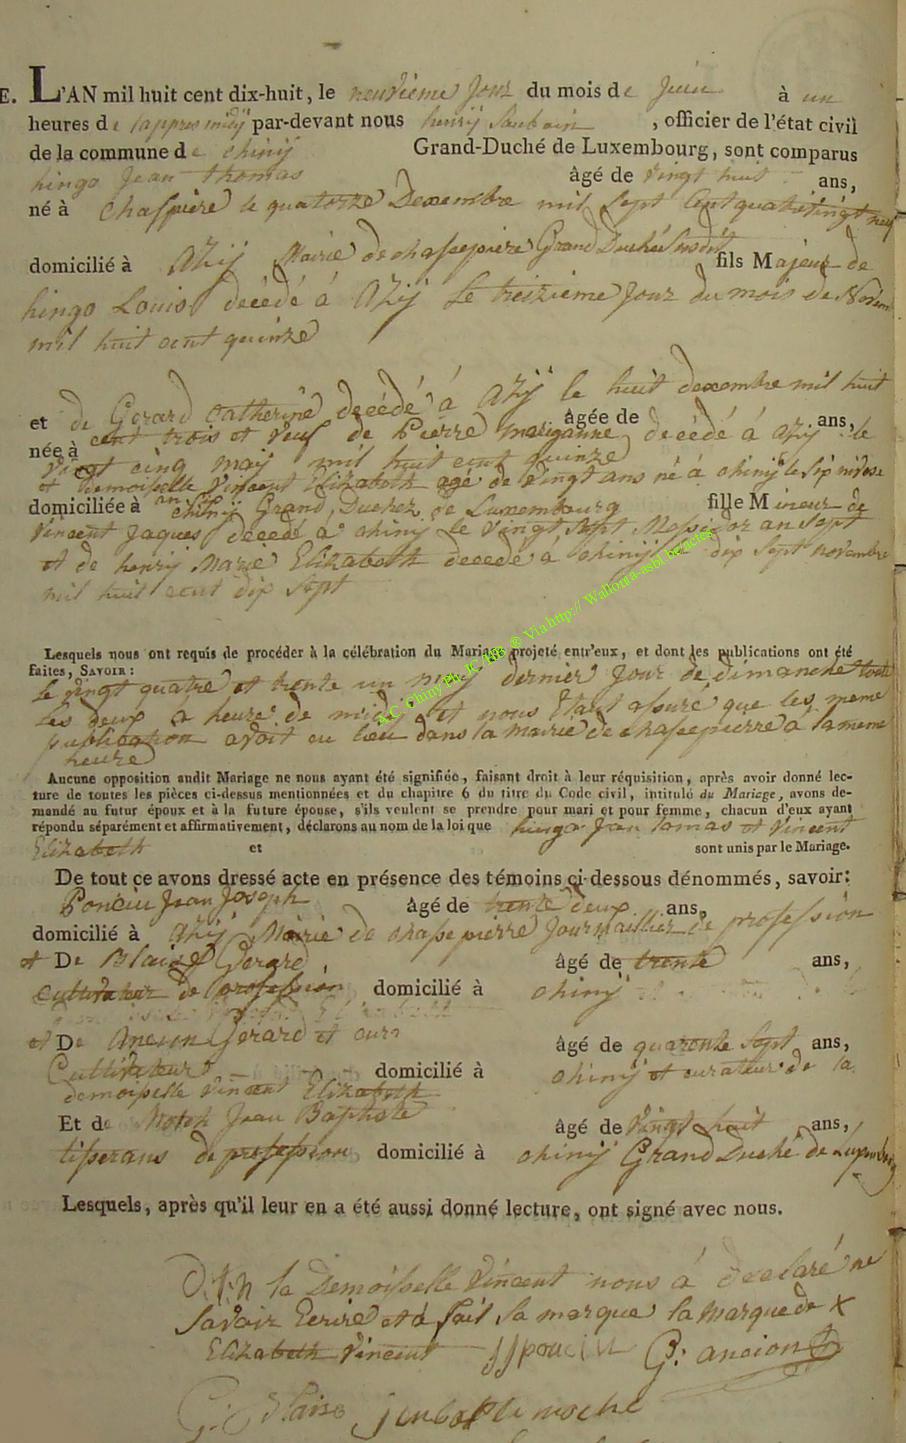 E. L'AN mil huit cent dix-huit, le neuvieme Jour du mois de Juin à un
heures de lappres midÿ par-devant nous henrÿ , officier de l'état civil
de la commune de chinÿ Grand-Duché de Luxembourg, sont comparus
hingo Jean thomas âgé de vingt huit ans,
né à Chaspiere le quatorze Decembre mil sept Cent quatrevingt neuf
domicilié à Azÿ Mairie de chassepiere Grand Duché susdit fils Majeur de
hingo Louis décédé á Azÿ Le treizieme Jour du mois de Novem
mil huit cent quinze
et de Gerard Catherine décédé á Azÿ le huit decembre mil huit
âgée de ans,
née à cent trois et veuf de Pierre décédé á Azÿ le
vingt cinq maÿ mil huit cent quinze
et Demoiselle Vincent Elizabeth agé de vingt ans né á chinÿ le six nivose
domiciliée à an chinÿ Grand Duchez de Luxembourg fille Mineur de
Vincent Jaques décédé á chinÿ le vingt sept Messidor an sept
et de henrÿ Marie Elizabeth decedé á chinÿ dix sept novembre
mil huit cent dix sept
Lesquels nous ont requis de procéder à la célébration du Mariage projeté entr'eux, et dont les publications ont été
faites, SAVOIR:
le vingt quatre et trente un maÿ dernier Jour de dimanche toute
les deux a heure de midi et nous Etant assuré que les meme
publication avoit eu lieu dans la mairie de chassepierre á la meme
heure
A.C. Chiny Ph. JC 186 ® Via http:// Wallonia-asbl benactes
Aucune opposition audit Mariage ne nous ayant été signifiée, faisant droit à leur réquisition, après avoir donné lec-
ture de toutes les pièces ci-dessus mentionnées et du chapitre 6 du titre du Code civil, intitulé du Mariage, avons de-
mandé au futur époux et à la future épouse, s'ils veulent se prendre pour mari et pour femme, chacun d'eux ayant
répondu séparément et affirmativement, déclarons au nom de la loi que hingo Jean tomas et Vincent
Elizabeth et sont unis par le Mariage.
De tout ce avons dressé acte en présence des témoins ci-dessous dénommés, savoir:
Poncin Jean Joseph âgé de trente deux ans,
domicilié à Azÿ Mairie de chasepierre Journaillier de profession
et De Blaise Gerard, âgé de trente ans,
Cultivateur de profession domicilié à chinÿ
et De Ancion Gerard et âgé de quarante sept ans,
Cultivateur domicilié à chinÿ et curateur de la
demoiselle Vincent Elizabeth
Et de Jean Baptiste âgé de vingt huit ans,
tisserans de profession domicilié à chinÿ Grand Duché de Luxembourg
Lesquels, après qu'il leur en a été aussi donné lecture, ont signé avec nous.
la Demoiselle Vincent nous á declaré ne
savoir Ecrire et á fait sa marque la marque de X
Elizabeth Vincent JJ poncin G: ancion
G: Blaise